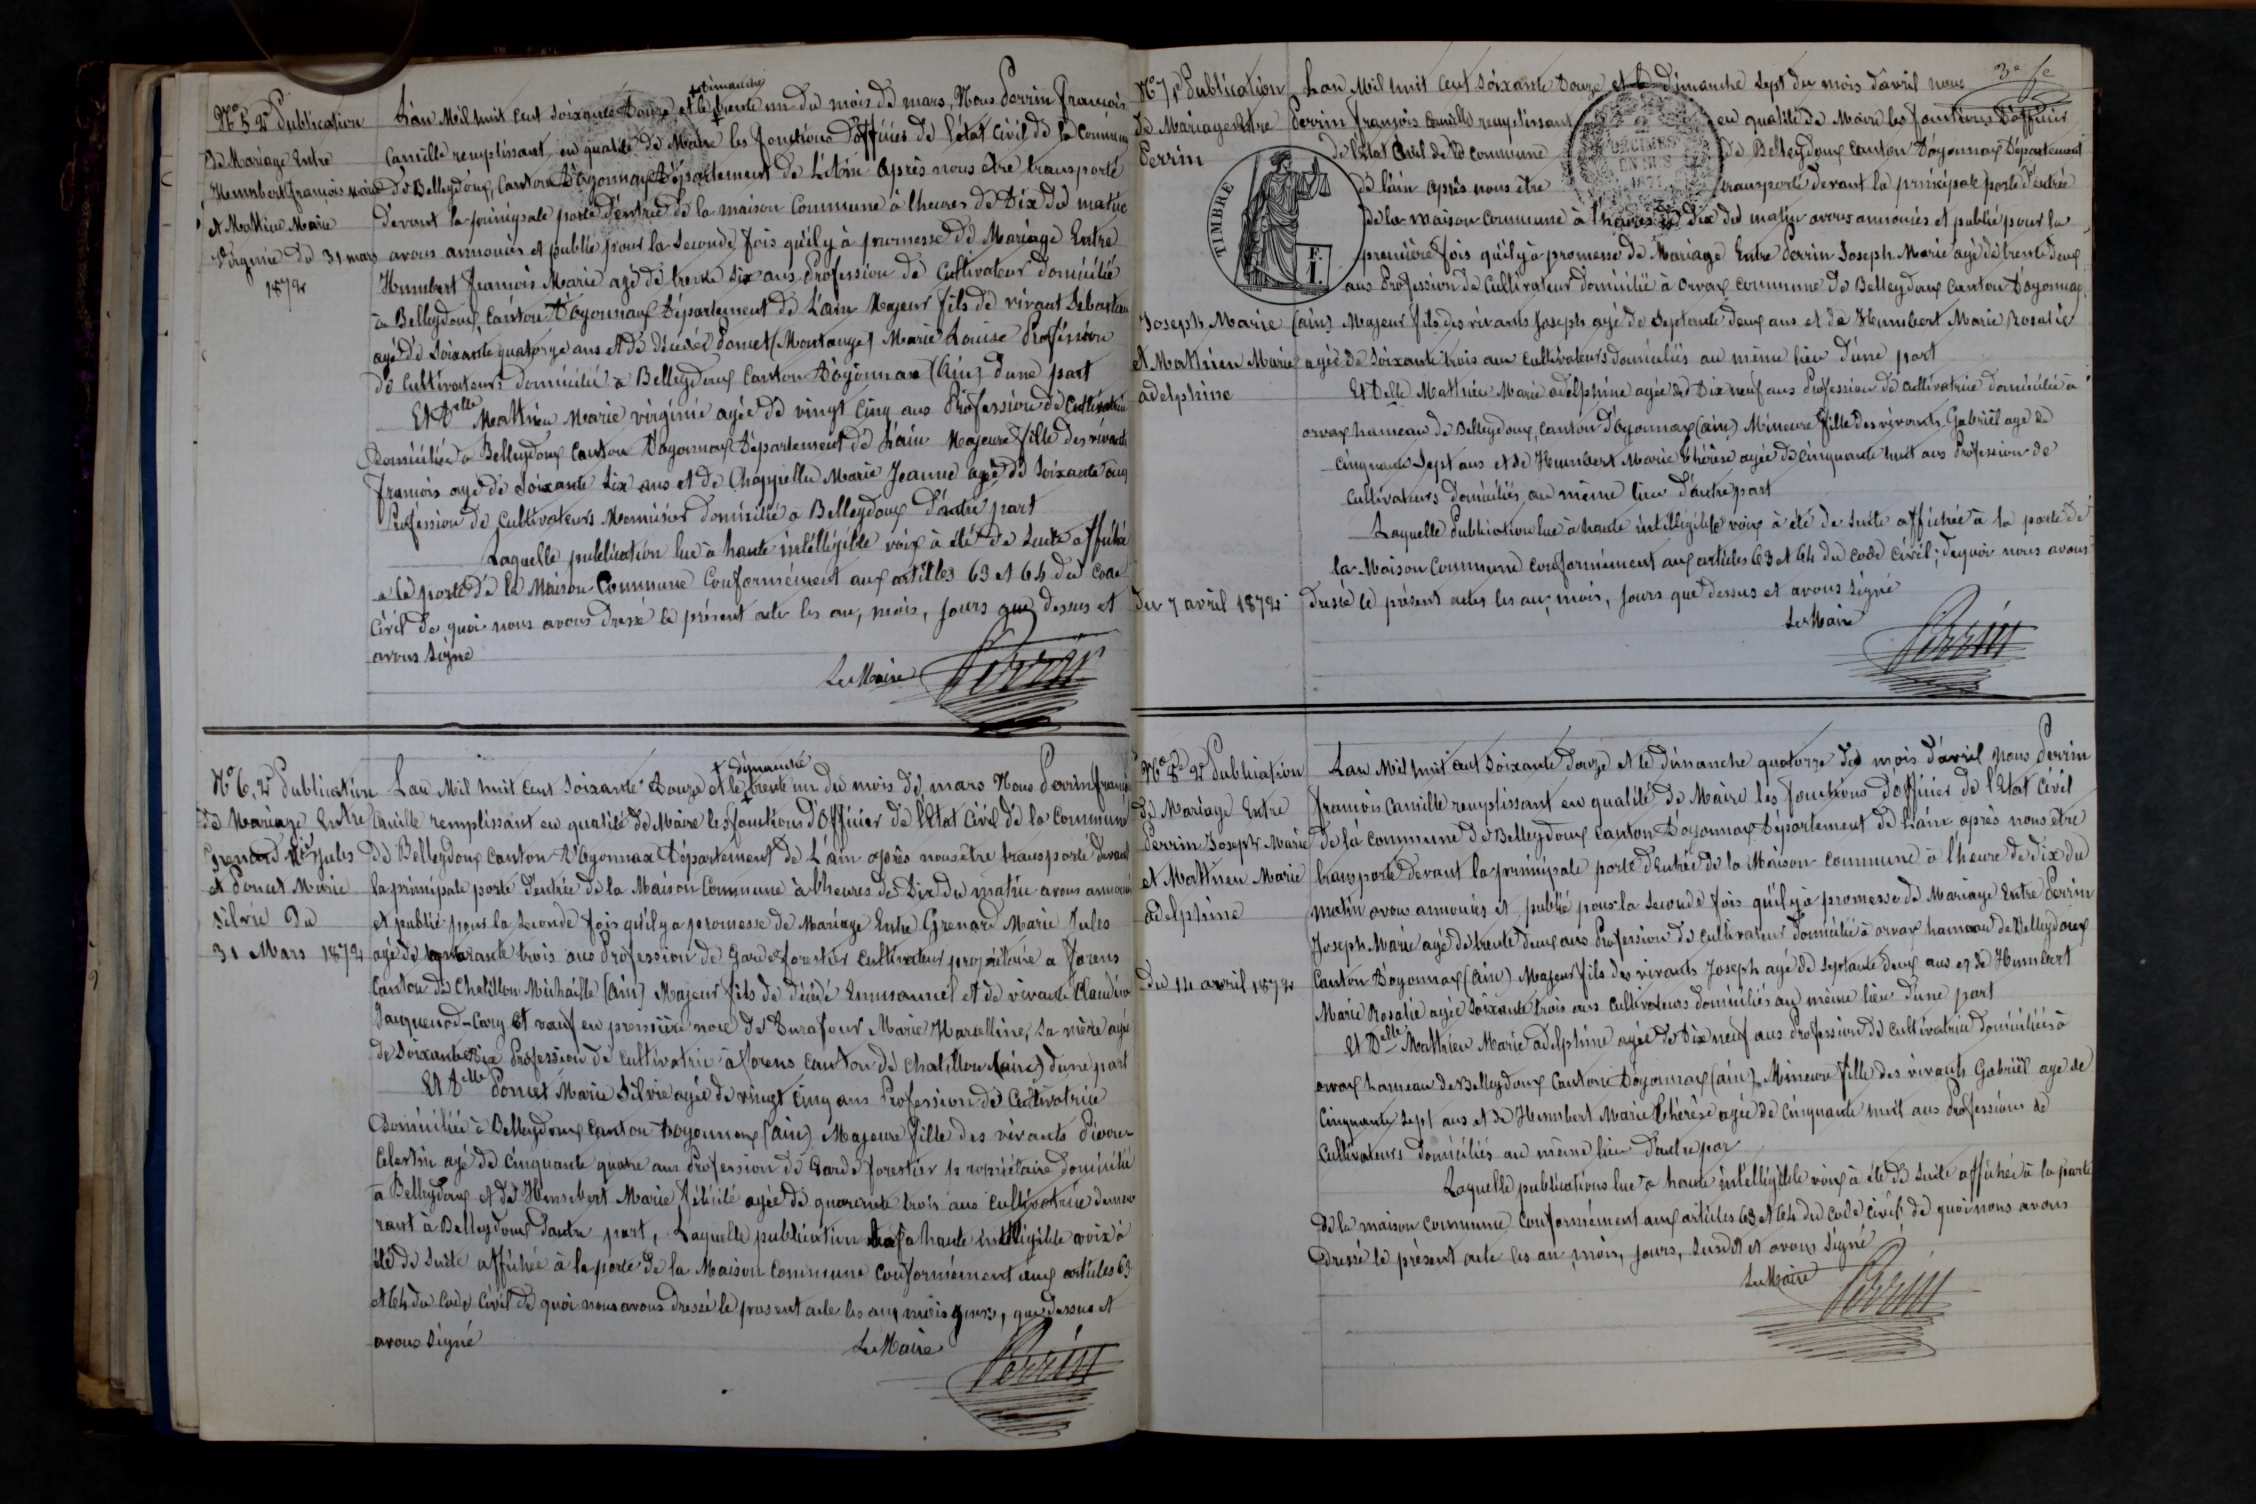 Nº 5 2e Publication
De Mariage Entre
Humbert françois marie
et Mathieu Marie
Virginie du 31 mars
1872
+ dimanche
L'an Mil huit cent soixante Douze et le + trente un du mois de mars, Nous Perrin François
Camille remplissant en qualité de Maire les fonctions d'officier de l'état Civil de la Commune
de Belleydoux, Canton D'oyonnax Département de L'Ain Après nous être transporté
devant la principale porte d'entrée de la maison Commune à l'heures de Dix du matin
avons annoncés et publié pour la Seconde fois qu'il y à promesse de Mariage Entre
Humbert François Marie agé de trente six ans Profession de Cultivateur domicilié
à Belleydoux, Canton D'oyonnax Département de L'ain Majeur fils de vivant Sébastien
agé de Soixante quatorze ans et de décédée Poncet (Montange) Marie Louise Profession
de Cultivateurs domicilié à Belleydoux Canton D'oyonnax (Ain) d'une part
Et Delle Mathieu Marie virginie agée de vingt cinq ans Profession de Cultivatrice
Domiciliée à Belleydoux Canton D'oyonnax Département de L'ain Majeure fille des vivants
françois agé de Soixante Six ans et de Chappellu Marie Jeanne agée de Soixante cinq
Profession de Cultivateurs Menuisier domicilié à Belleydoux d'autre part
Laquelle publication lue à haute intélligible voix à été de suite affiché
a la porte de la Maison Commune Conformément aux articles 63 et 64 du Code
Civil de quoi nous avons dressé le présent acte les an, mois, Jours que dessus et
avons signé
Le Maire Perrin
Nº 6, 2e Publication
de Mariage Entre
Grenard Mie Jules
et Poncet Marie
Silvie Du
31 Mars 1872
+ dimanche
L'an Mil huit Cent Soixante Douze et le + trente un du mois de mars Nous Perrin françois
Camille remplissant en qualité de Maire les fonctions d'Officier de l'Etat Civil de la Commune
de Belleydoux Canton D'Oyonnax Département de L'ain après nous être transporté devant
la principale porte d'entrée de la Maison Commune à l'heures de Dix du matin avons annoncé
et publié pour la Seconde fois qu'il y a promesse de Mariage Entre Grenard Marie Jules
agé de quarante trois ans Profession de Garde forestier Cultivateur propriétaire a forens
Canton de Chatillon Michaille (Ain) Majeur fils de décédé Emmanuel et de vivante Claudine
Jacquenod-Cary Et veuf en première noce de Durafour Marie Marcelline, sa mère agée
de Soixante Dix Profession de Cultivatrice à forens Canton de Chatillon (ain) d'une part
Et Delle Poncet Marie Silvie agée de vingt cinq ans Profession de Cultivatrice
Domiciliée à Belleydoux Canton D'oyonnax (Ain) Majeure fille des vivants
Célestin agé de Cinquante quatre ans Profession de Garde forestier propriétaire domicilié
à Belleydoux et de Humbert Marie Félicité agée de quarante trois ans Cultivatrice demeu
rant à Belleydoux d'autre part, Laquelle publication lue à haute intélligible voix à
été de suite affichée à la porte de la Maison Commune Conformément aux articles 63
et 64 du Code Civil de quoi nous avons dressé le présent acte les an, mois, jours, que dessus et
avons signé
Le Maire Perrin
Nº 7, 1e Publication
de Mariage Entre
Perrin
Joseph Marie
et Mathieu Marie
adelphine
du 7 avril 1872
3e fe
TIMBRE
F.
I.
2
DECIMES
EN SUS
1871
L'an Mil huit cent Soixante Douze et le Dimanche Sept du mois d'avril nous
Perrin François Camille remplissant en qualité de Maire les fonctions d'officier
de l'état Civil de la Commune de Belleydoux Canton D'oyonnax Département
de l'ain après nous être transporté devant la principale porte d'entrée
de la maison Commune à l'heures de dix du matin avons annoncés et publié pour la
première fois qu'il y à promesse de Mariage Entre Perrin Joseph Marie agé de trente deux
ans Profession de Cultivateur domicilié à Orvaz Commune de Belleydoux Canton D'oyonnax
(ain) Majeur fils des vivants Joseph agé de Septante deux ans et de Humbert Marie Rosalie
agée de Soixante trois ans Cultivateurs domiciliés au même lieu d'une part
Et Delle Mathieu Marie adelphine agée de Dix neuf ans Profession de Cultivatrice domiciliée à
orvaz hameau de Belleydoux, Canton d'Oyonnax (ain) Mineure fille des vivants Gabriël agé de
Cinquante Sept ans et de Humbert Marie Thérèse agée de Cinquante huit ans Profession de
Cultivateurs domiciliés au même lieu d'autre part
Laquelle Publication lue à haute intélligible voix à été de suite affichée à la porte de
la Maison Commune Conformément aux articles 63 et 64 du Code Civil; de quoi nous avons
dressé le présent actes les an, mois, Jours que dessus et avons signé
Le Maire Perrin
Nº 8e 2e Publication
de Mariage Entre
Perrin Joseph Marie
et Mathieu Marie
adelphine
Du 14 avril 1872
L'an Mil huit cent soixante Douze et le Dimanche quatorze du mois d'avril Nous Perrin
François Camille remplissant en qualité de Maire les fonctions d'officier de l'Etat Civil
de la Commune de Belleydoux Canton D'oyonnax Département de L'ain après nous être
transporté devant la principale porte d'entrée de la Maison Commune à l'heure de dix du
matin avons annoncés et publié pour la seconde fois qu'il y a promesse de Mariage Entre Perrin
Joseph Marie agé de trente deux ans Profession de Cultivateur domicilié à orvaz hameau de Belleydoux
Canton D'oyonnax (ain) Majeur fils des vivants Joseph agé de Septante deux ans et de Humbert
Marie Rosalie agée Soixante trois ans Cultivateurs domiciliés au même lieu d'une part
Et Delle Mathieu Marie adelphine agée de Dix neuf ans Profession de Cultivatrice domiciliée à
orvaz hameau de Belleydoux Canton D'oyonnax (ain) Mineure fille des vivants Gabriël agé de
Cinquante Sept ans et de Humbert Marie Thérèse agée de Cinquante huit ans Profession de
Cultivateurs domiciliés au même lieu d'autre par
Laquelle publications lue à haute intélligible voix à été de suite affichée à la porte
de la maison Commune Conformément aux articles 63 et 64 du Code Civil de quoi nous avons
dressé le présent acte les an, mois, jours, susdit et avons signé
Le Maire Perrin